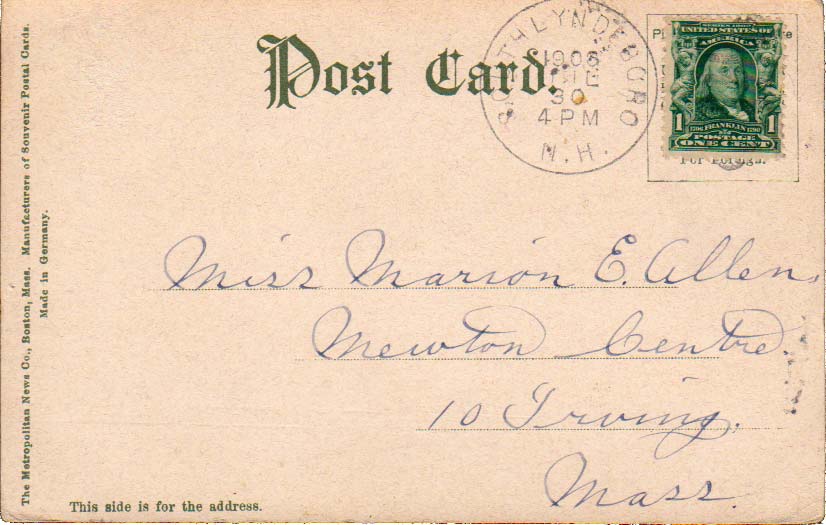 Post Card.
SOUTH LYNDEBORO
1906
30
4 PM
N.H.
SERIES 1902
UNITED STATES OF
AMERICA
1 1706 FRANKLIN 1790 1
POSTAGE
ONE CENT
For Foreign.
Miss Marion E. Allen,
Newton Centre.
10 Irving.
Mass.
This side is for the address.
The Metropolitan News Co., Boston, Mass. Manufacturers of Souvenir Postal Cards.
Made in Germany.